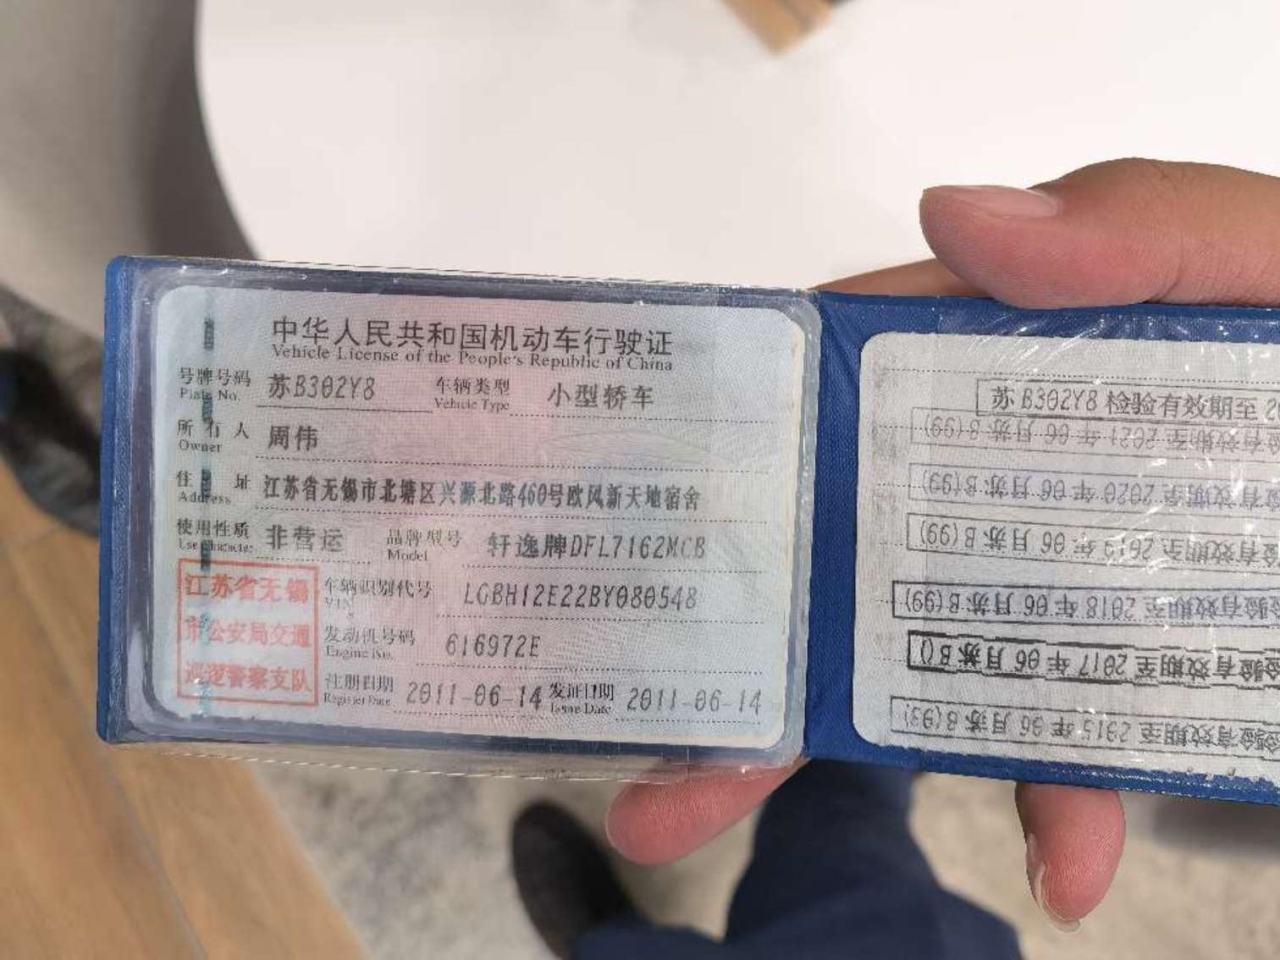 中华人民共和国机动车行驶证
Vehicle License of the People's Republic of China
号牌号码 苏B302Y8 车辆类型 小型轿车
Plate No. Vehicle Type
所有人 周伟
Owner
住址 江苏省无锡市北塘区兴源北路460号欧风新天地宿舍
Address
使用性质 非营运 品牌型号 轩逸牌DFL7162MCB
Use Character Model
江苏省无锡
市公安局交通
巡逻警察支队
车辆识别代号 LGBH12E22BY080548
VIN
发动机号码 616972E
Engine No.
注册日期 2011-06-14 发证日期 2011-06-14
Register Date Issue Date
苏B302Y8 检验有效期至2
验有效期至 2021 年 06 月 苏B(99)
验有效期至 2020 年 06 月 苏B(99)
验有效期至 2019 年 06 月 苏B(99)
验有效期至 2018 年 06 月 苏B(99)
验有效期至 2017 年 06 月 苏B()
检验有效期至 2015 年 06 月 苏B(93)